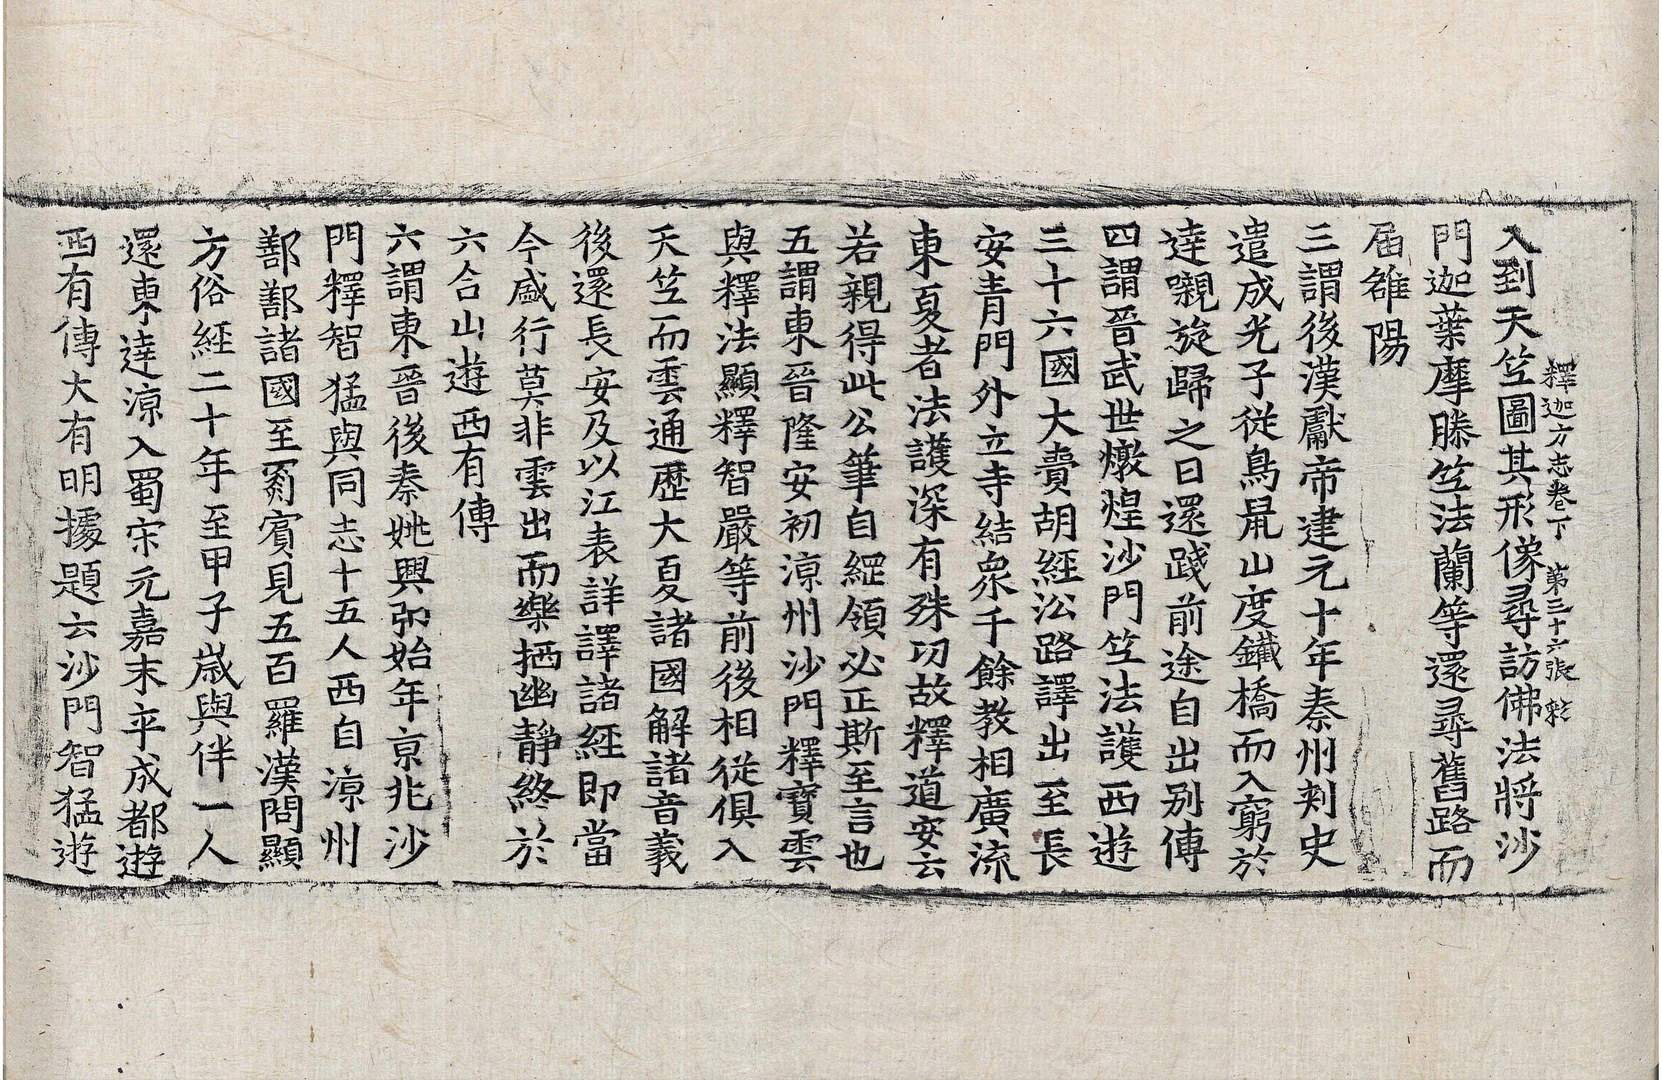 釋迦方志卷下 第三十六張 彩
入到天竺圖其形像尋訪佛法將沙
門迦葉摩騰竺法蘭等還尋舊路而
届雒陽
三謂後漢獻帝建元十年秦州刾史
遣成光子從鳥鼠山度鐵橋而入窮於
達嚫旋歸之日還踐前途自出别傳
四謂晉武世燉煌沙門竺法護西遊
三十六國大賷胡經沿路譯出至長
安青門外立寺結衆千餘教相廣流
東夏者法護深有殊功故釋道安云
若親得此公筆自綱領必正斯至言也
五謂東晉隆安初涼州沙門釋寶雲
與釋法顯釋智嚴等前後相從俱入
天竺而雲通歷大夏諸國解諸音義
後還長安及以江表詳譯諸經即當
今盛行莫非雲出而樂栖幽靜終於
六合山遊西有傳
六謂東晉後秦姚興弘始年京兆沙
門釋智猛與同志十五人西自涼州
鄯鄯諸國至罽賓見五百羅漢問顯
方俗經二十年至甲子歲與伴一人
還東達涼入蜀宋元嘉末卒成都遊
西有傳大有明據題云沙門智猛遊